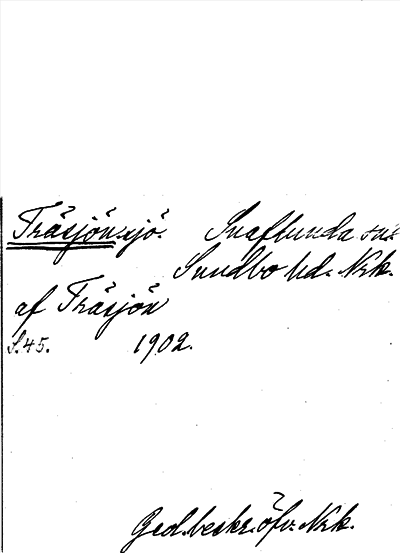 Träsjön. sjö. Snaflunda sn.
Sundbo hd. Nrk.
af Träsjön
S.45. 1902.
Geol. beskr. öfv. Nrk.